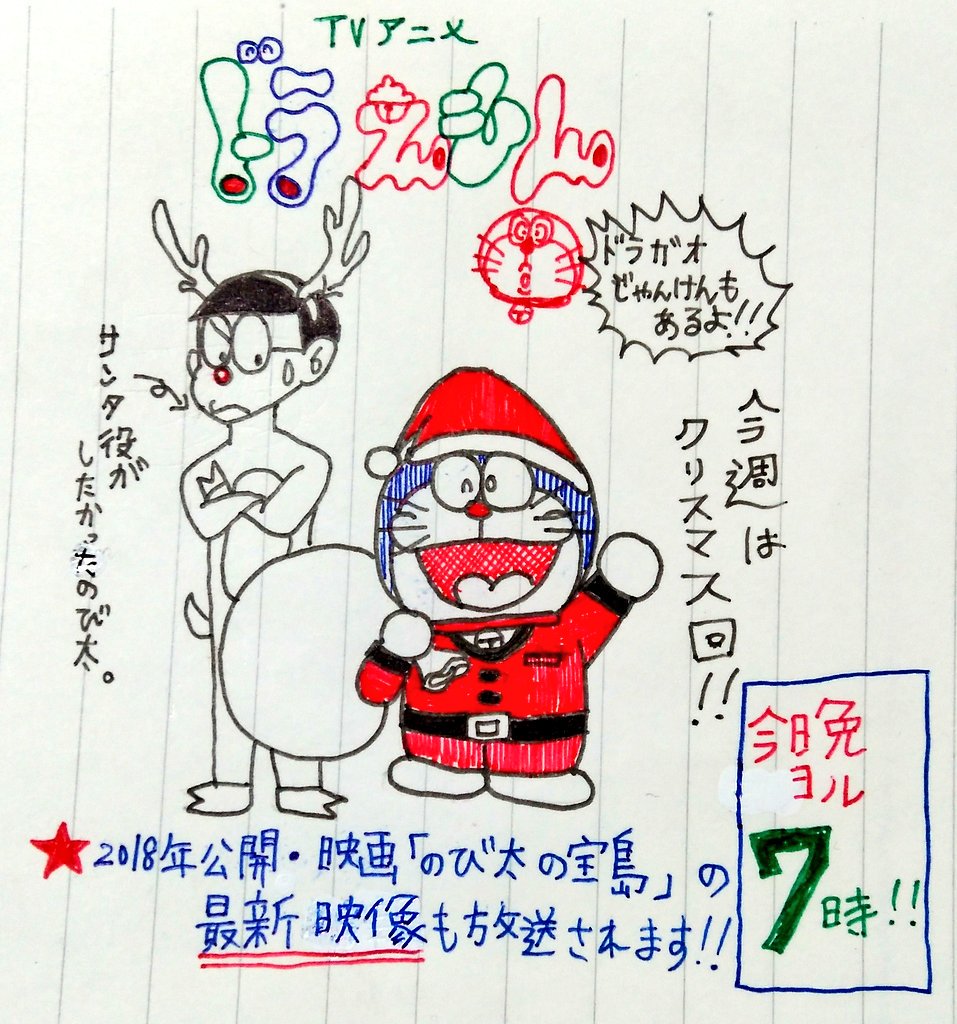 TVアニメ
ドラえもん
ドラガオ
じゃんけんも
あるよ!!
今週は
クリスマス回!!
サンタ役が
したかったのび太。
今日晩
ヨル
7時!!
★2018年公開・映画「のび太の宝島」の
最新映像も放送されます!!